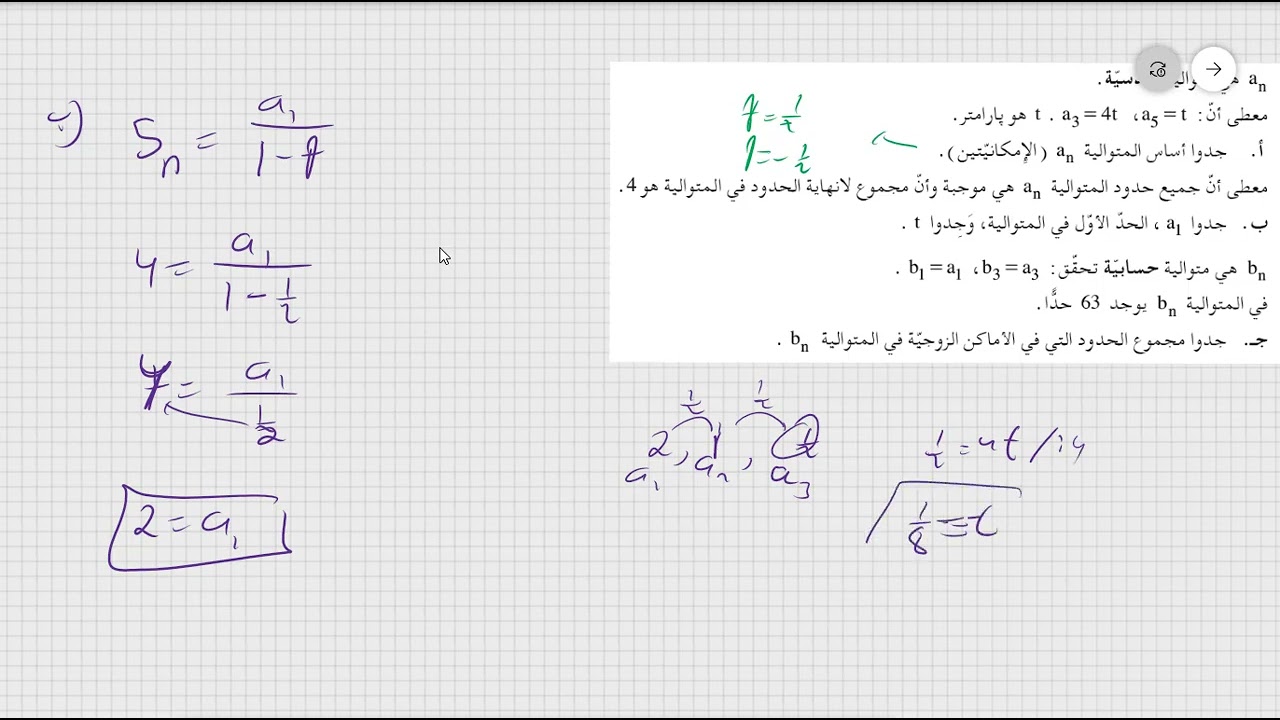 a_n هي ... .
معطى أنّ: a_5 = t ، a_3 = 4t . t هو پارامتر.
أ. جدوا أساس المتوالية a_n (الإمكانيّتين).
معطى أنّ جميع حدود المتوالية a_n هي موجبة وأنّ مجموع لانهاية الحدود في المتوالية هو 4.
ب. جدوا a_1 ، الحدّ الأوّل في المتوالية، وَجِدوا t .
b_n هي متوالية حسابيّة تحقّق: b_3 = a_3 ، b_1 = a_1 .
في المتوالية b_n يوجد 63 حدًّا.
جـ. جدوا مجموع الحدود التي في الأماكن الزوجيّة في المتوالية b_n .
q = 1/2
q = -1/2
ب)
S_n = a_1 / (1 - q)
4 = a_1 / (1 - 1/2)
4 = a_1 / (1/2)
2 = a_1
1/2 1/2
2, 1, 1/2
a_1 a_2 a_3
1/2 = 4t /:4
1/8 = t